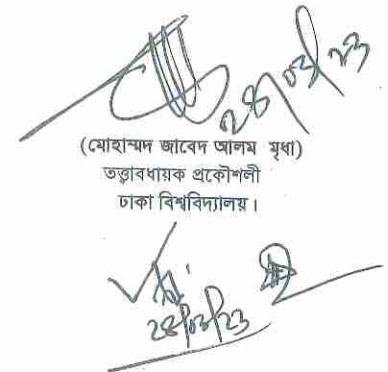 ২৪/০৩/২৩
(মোহাম্মদ জাবেদ আলম মৃধা)
তত্ত্বাবধায়ক প্রকৌশলী
ঢাকা বিশ্ববিদ্যালয়।
২৪/০৩/২৩